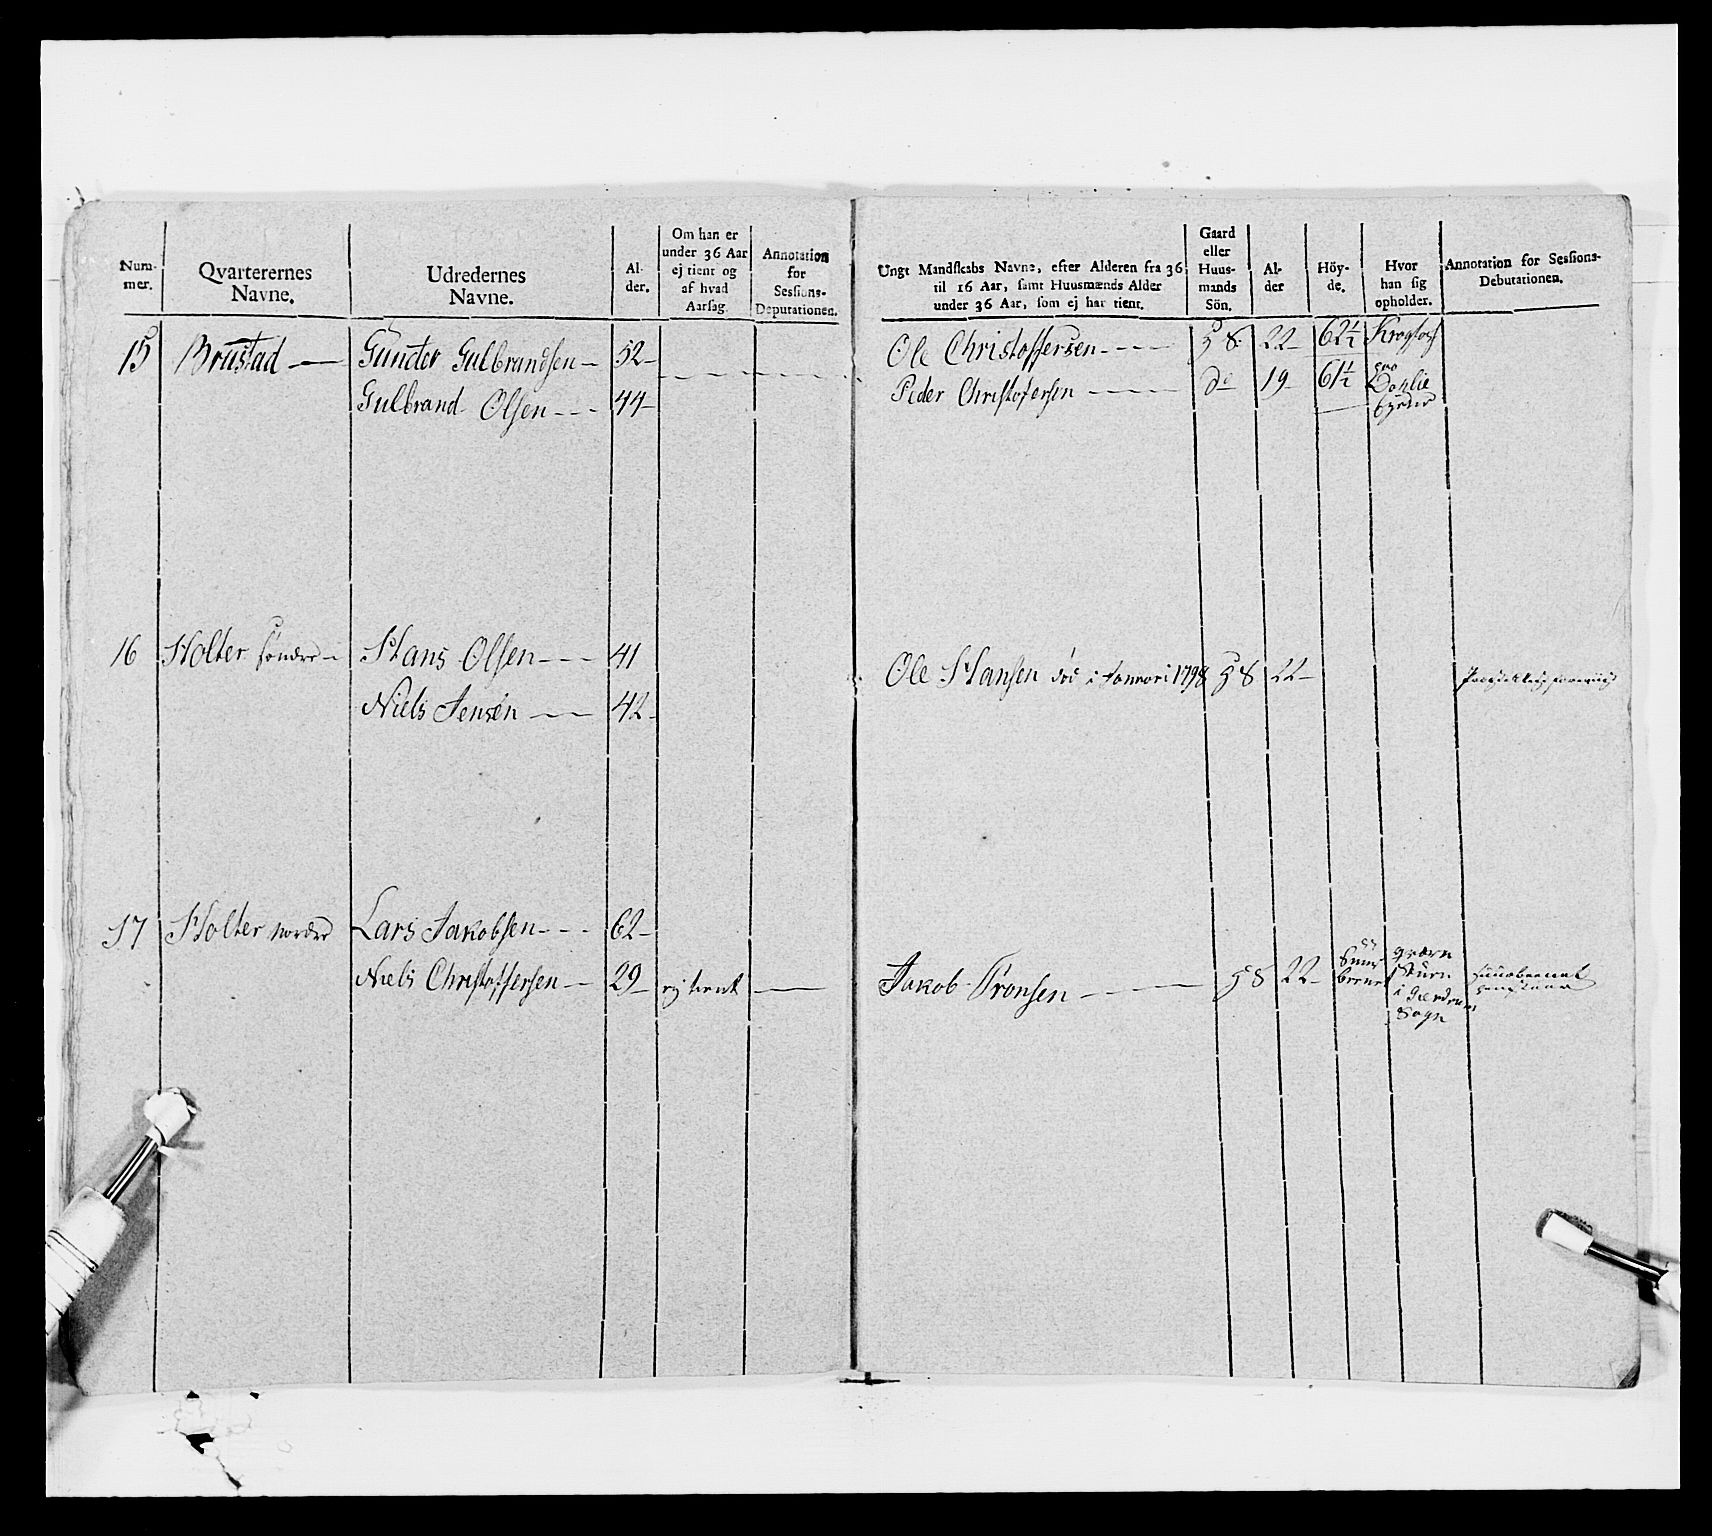 Num-
mer.
Qvarterernes
Navne.
Udredernes
Navne.
Al-
der.
Om han er
under 36 Aar
ej tient og
af hvad
Aarsag.
Annotation
for
Sessions-
Deputationen.
Ungt Mandskabs Navne, efter Alderen fra 36
til 16 Aar, samt Huusmænds Alder
under 36 Aar, som ej har tient.
Gaard
eller
Huus-
mands
Sön.
Al-
der
Höy-
de.
Hvor
han sig
opholder.
Annotation for Sessions-
Debutationen.
15 Brustad — Gunder Gulbrandsen - 52 -
Gulbrand Olsen --- 44 -
Ole Christoffersen ---- G S: 22 - 62½
Peder Christofersen ---- do 19 - 61½
paa
Dahlie
16 Holter søndre - Hans Olsen --- 41
Niels Jensen --- 42 -
Ole Hansen død i Januari 1798 G S 22 -
17 Holter nordre Lars Jakobsen --- 62 -
Niels Christoffersen -- 29 - ej tient —
Jakob Tronsen ---- G S 22 -
i Gierdrum
Sogn